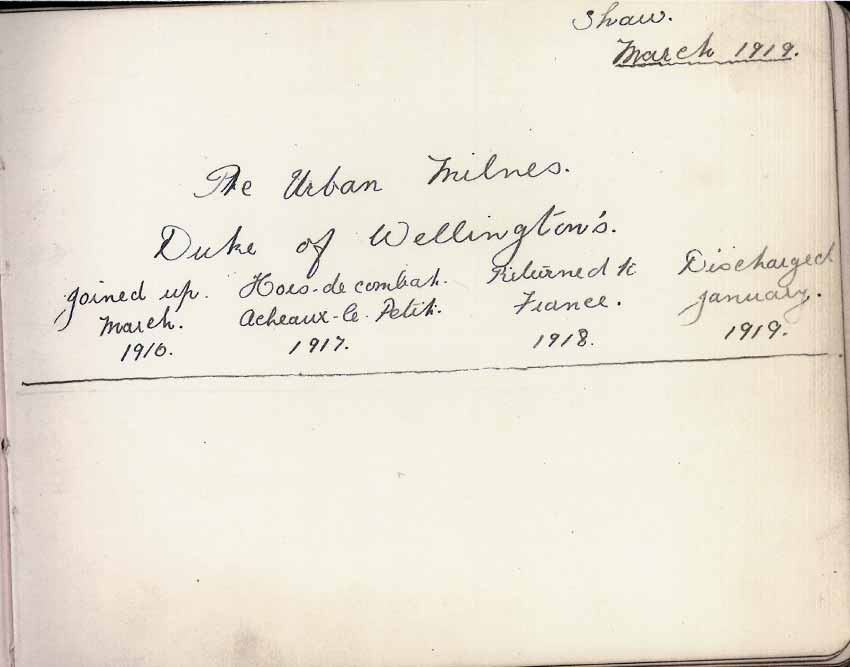 Shaw.
March 1919.
Pte Urban Milnes.
Duke of Wellington's.
Joined up.
March.
1916.
Hors-de combat.
Acheaux-le-Petit.
1917.
Returned to
France.
1918.
Discharged
January.
1919.